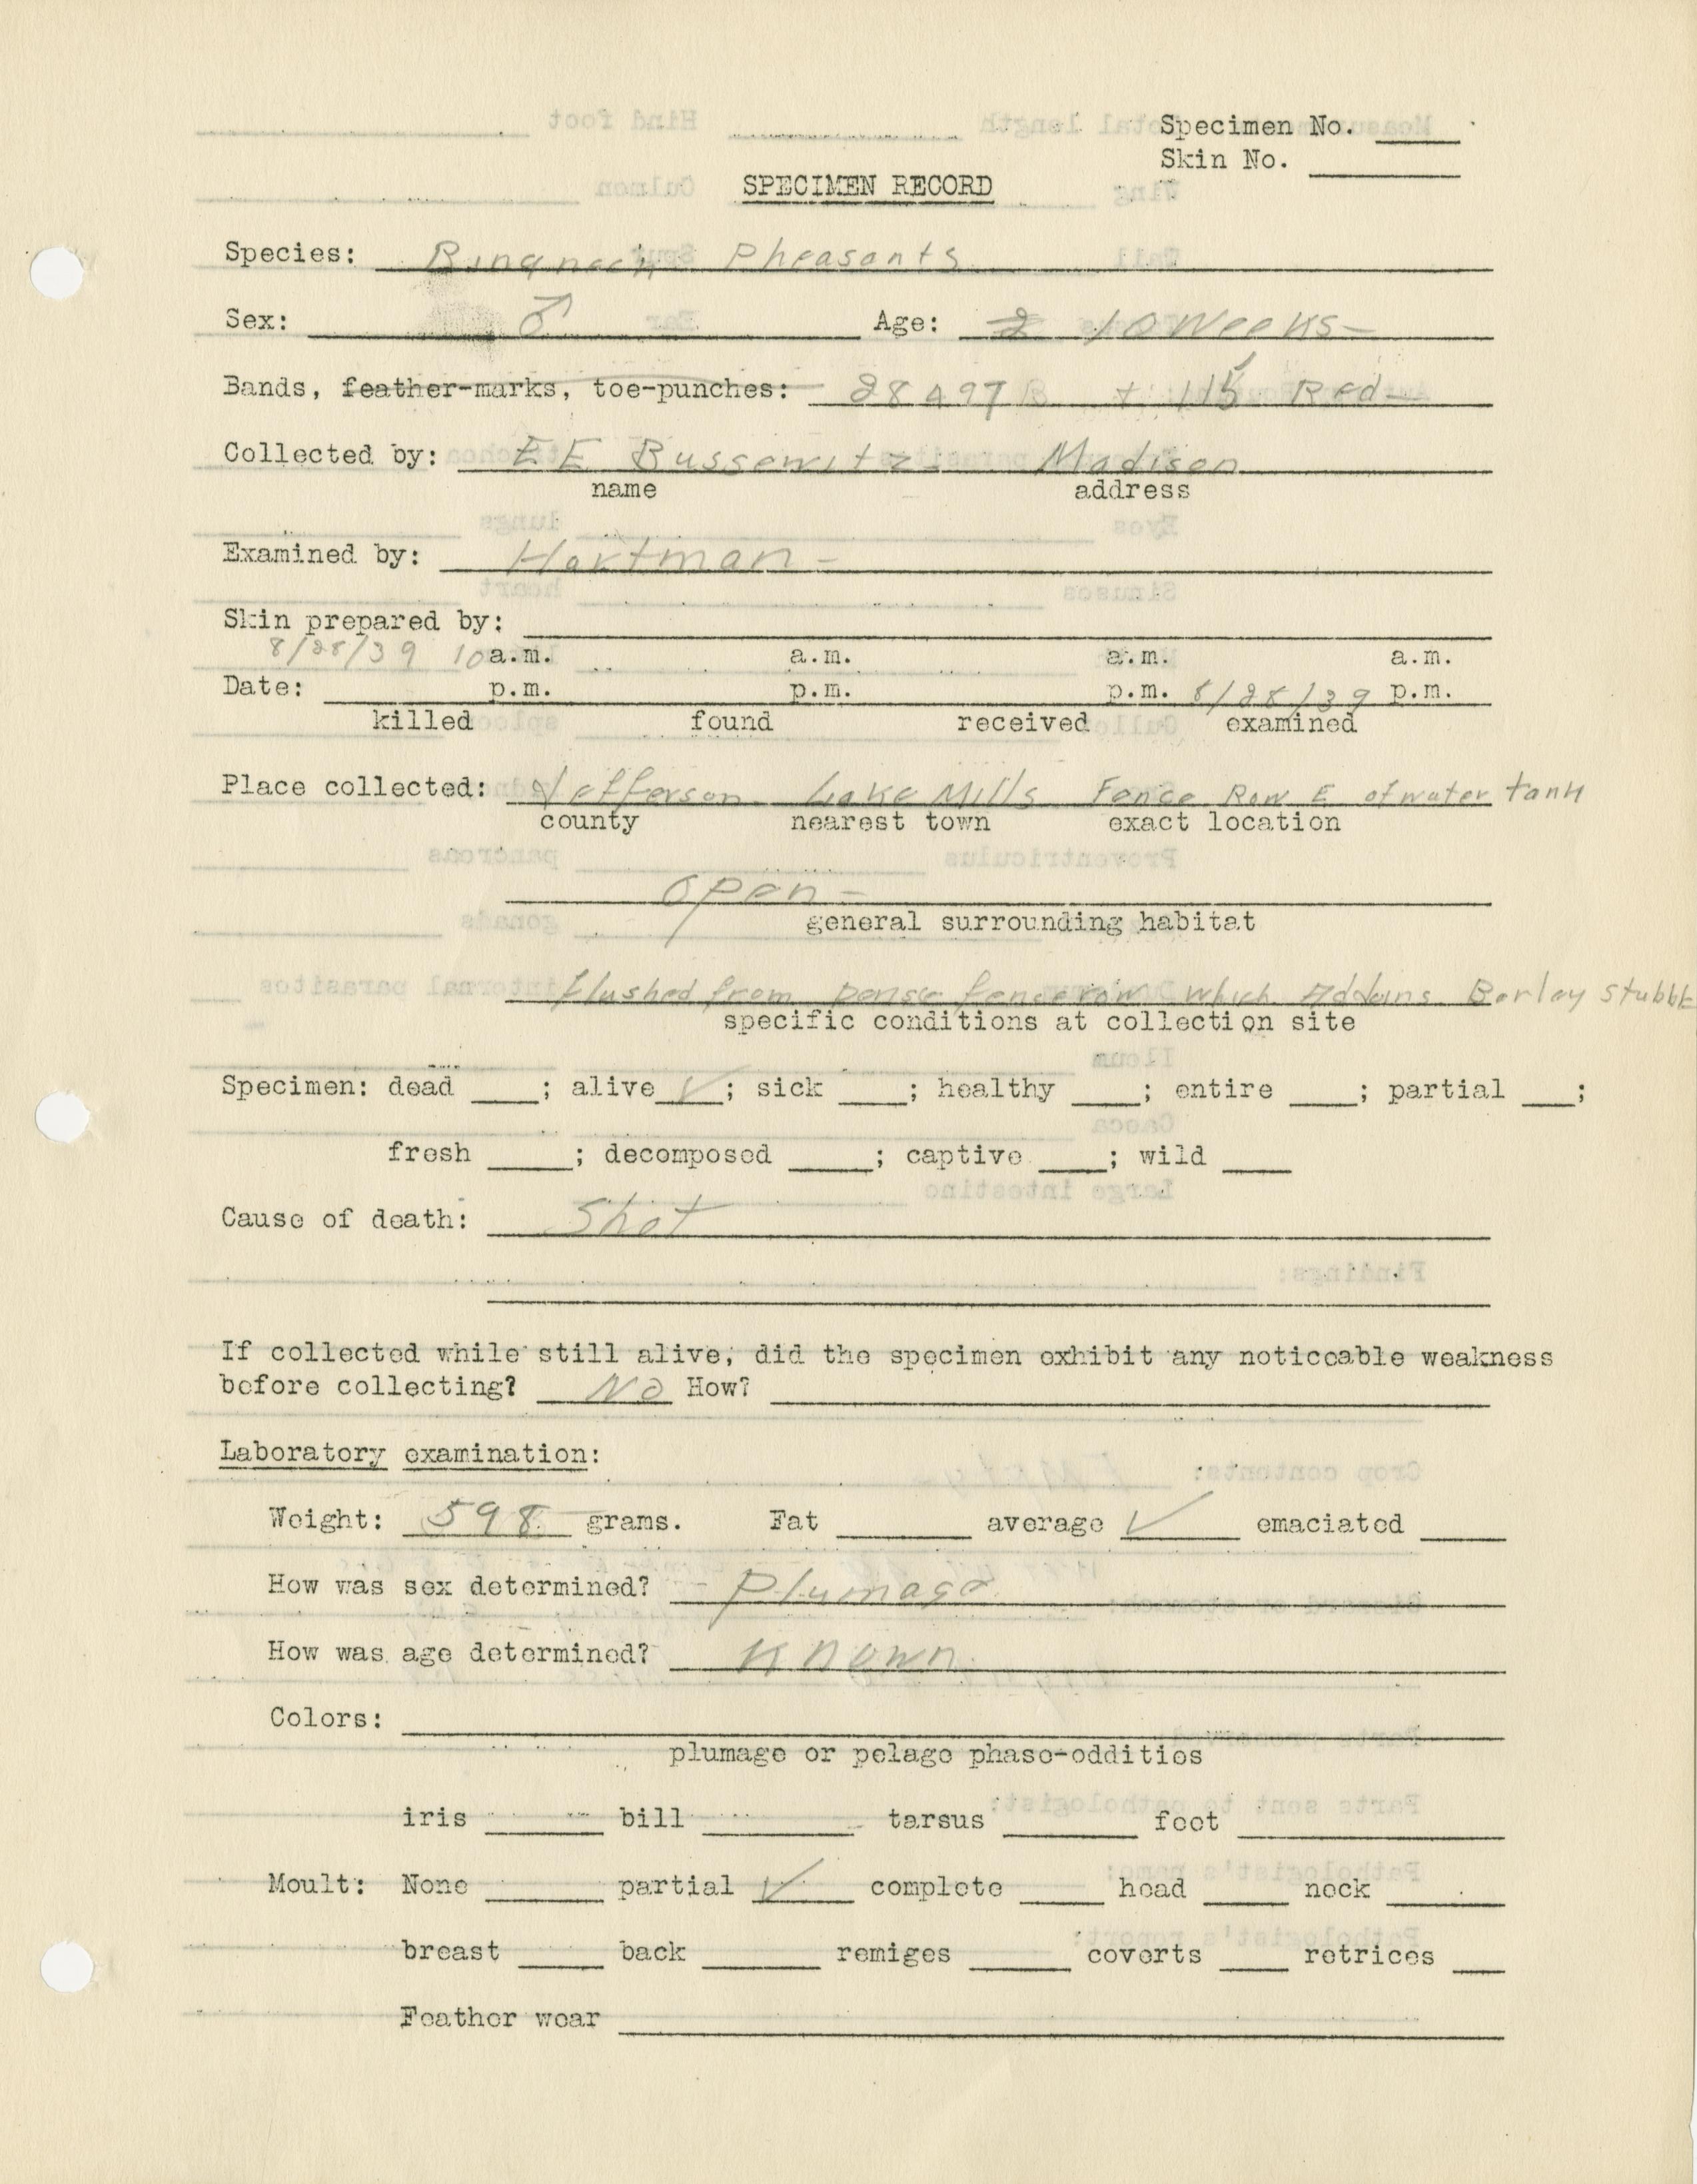 Specimen No. ____
Skin No. ____
SPECIMEN RECORD
Species: Ringneck Pheasants
Sex: ♂ Age: 10 Weeks-
Bands, feather-marks, toe-punches: + 115 Red-
Collected by: E E Bussewitz Madison
name address
Examined by: Hartman-
Skin prepared by:
8/28/39 10 a.m. a.m. a.m. a.m.
Date: p.m. p.m. p.m. 8/28/39 p.m.
killed found received examined
Place collected: Jefferson Lake Mills Fence Row E of water tank
county nearest town exact location
open-
general surrounding habitat
flushed from Dense fence row which Barley stubble
specific conditions at collection site
Specimen: dead ____; alive ✓; sick ____; healthy ____; entire ____; partial ____;
fresh ____; decomposed ____; captive ____; wild ____
Cause of death: Shot
If collected while still alive, did the specimen exhibit any noticeable weakness
before collecting? No How?
Laboratory examination:
Weight: 598 grams. Fat ____ average ✓ emaciated ____
How was sex determined? - Plumage
How was age determined? Known
Colors:
plumage or pelage phase-oddities
iris ____ bill ____ tarsus ____ foot ____
Moult: None ____ partial ✓ complete ____ head ____ neck ____
breast ____ back ____ remiges ____ coverts ____ retrices ____
Feather wear ____